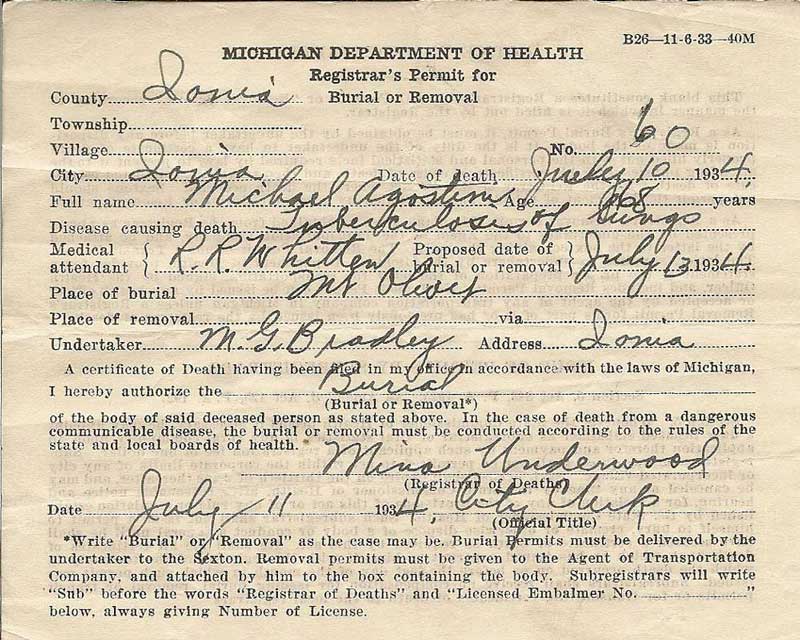 B26—11-6-33—40M
MICHIGAN DEPARTMENT OF HEALTH
Registrar's Permit for
County Ionia Burial or Removal
Township
Village No. 60
City Ionia Date of death July 10 1934.
Full name Michael Agostini Age 68 years
Disease causing death Tuberculosis of lungs
Medical attendant { R. R. Whitten Proposed date of burial or removal } July 13 1934.
Place of burial Mt Olivet
Place of removal via
Undertaker M. G. Bradley Address Ionia
A certificate of Death having been filed in my office in accordance with the laws of Michigan,
I hereby authorize the Burial
(Burial or Removal*)
of the body of said deceased person as stated above. In the case of death from a dangerous
communicable disease, the burial or removal must be conducted according to the rules of the
state and local boards of health.
Mina Underwood
(Registrar of Deaths)
Date July 11 1934, City Clerk
(Official Title)
*Write "Burial" or "Removal" as the case may be. Burial Permits must be delivered by the
undertaker to the Sexton. Removal permits must be given to the Agent of Transportation
Company, and attached by him to the box containing the body. Subregistrars will write
"Sub" before the words "Registrar of Deaths" and "Licensed Embalmer No. "
below, always giving Number of License.